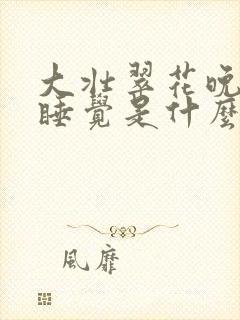 大壯翠花晚
睡覺是什麼
風靡